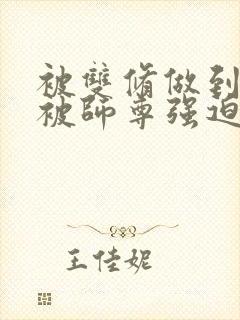 被雙脩做到
被師尊强迫
王佳妮